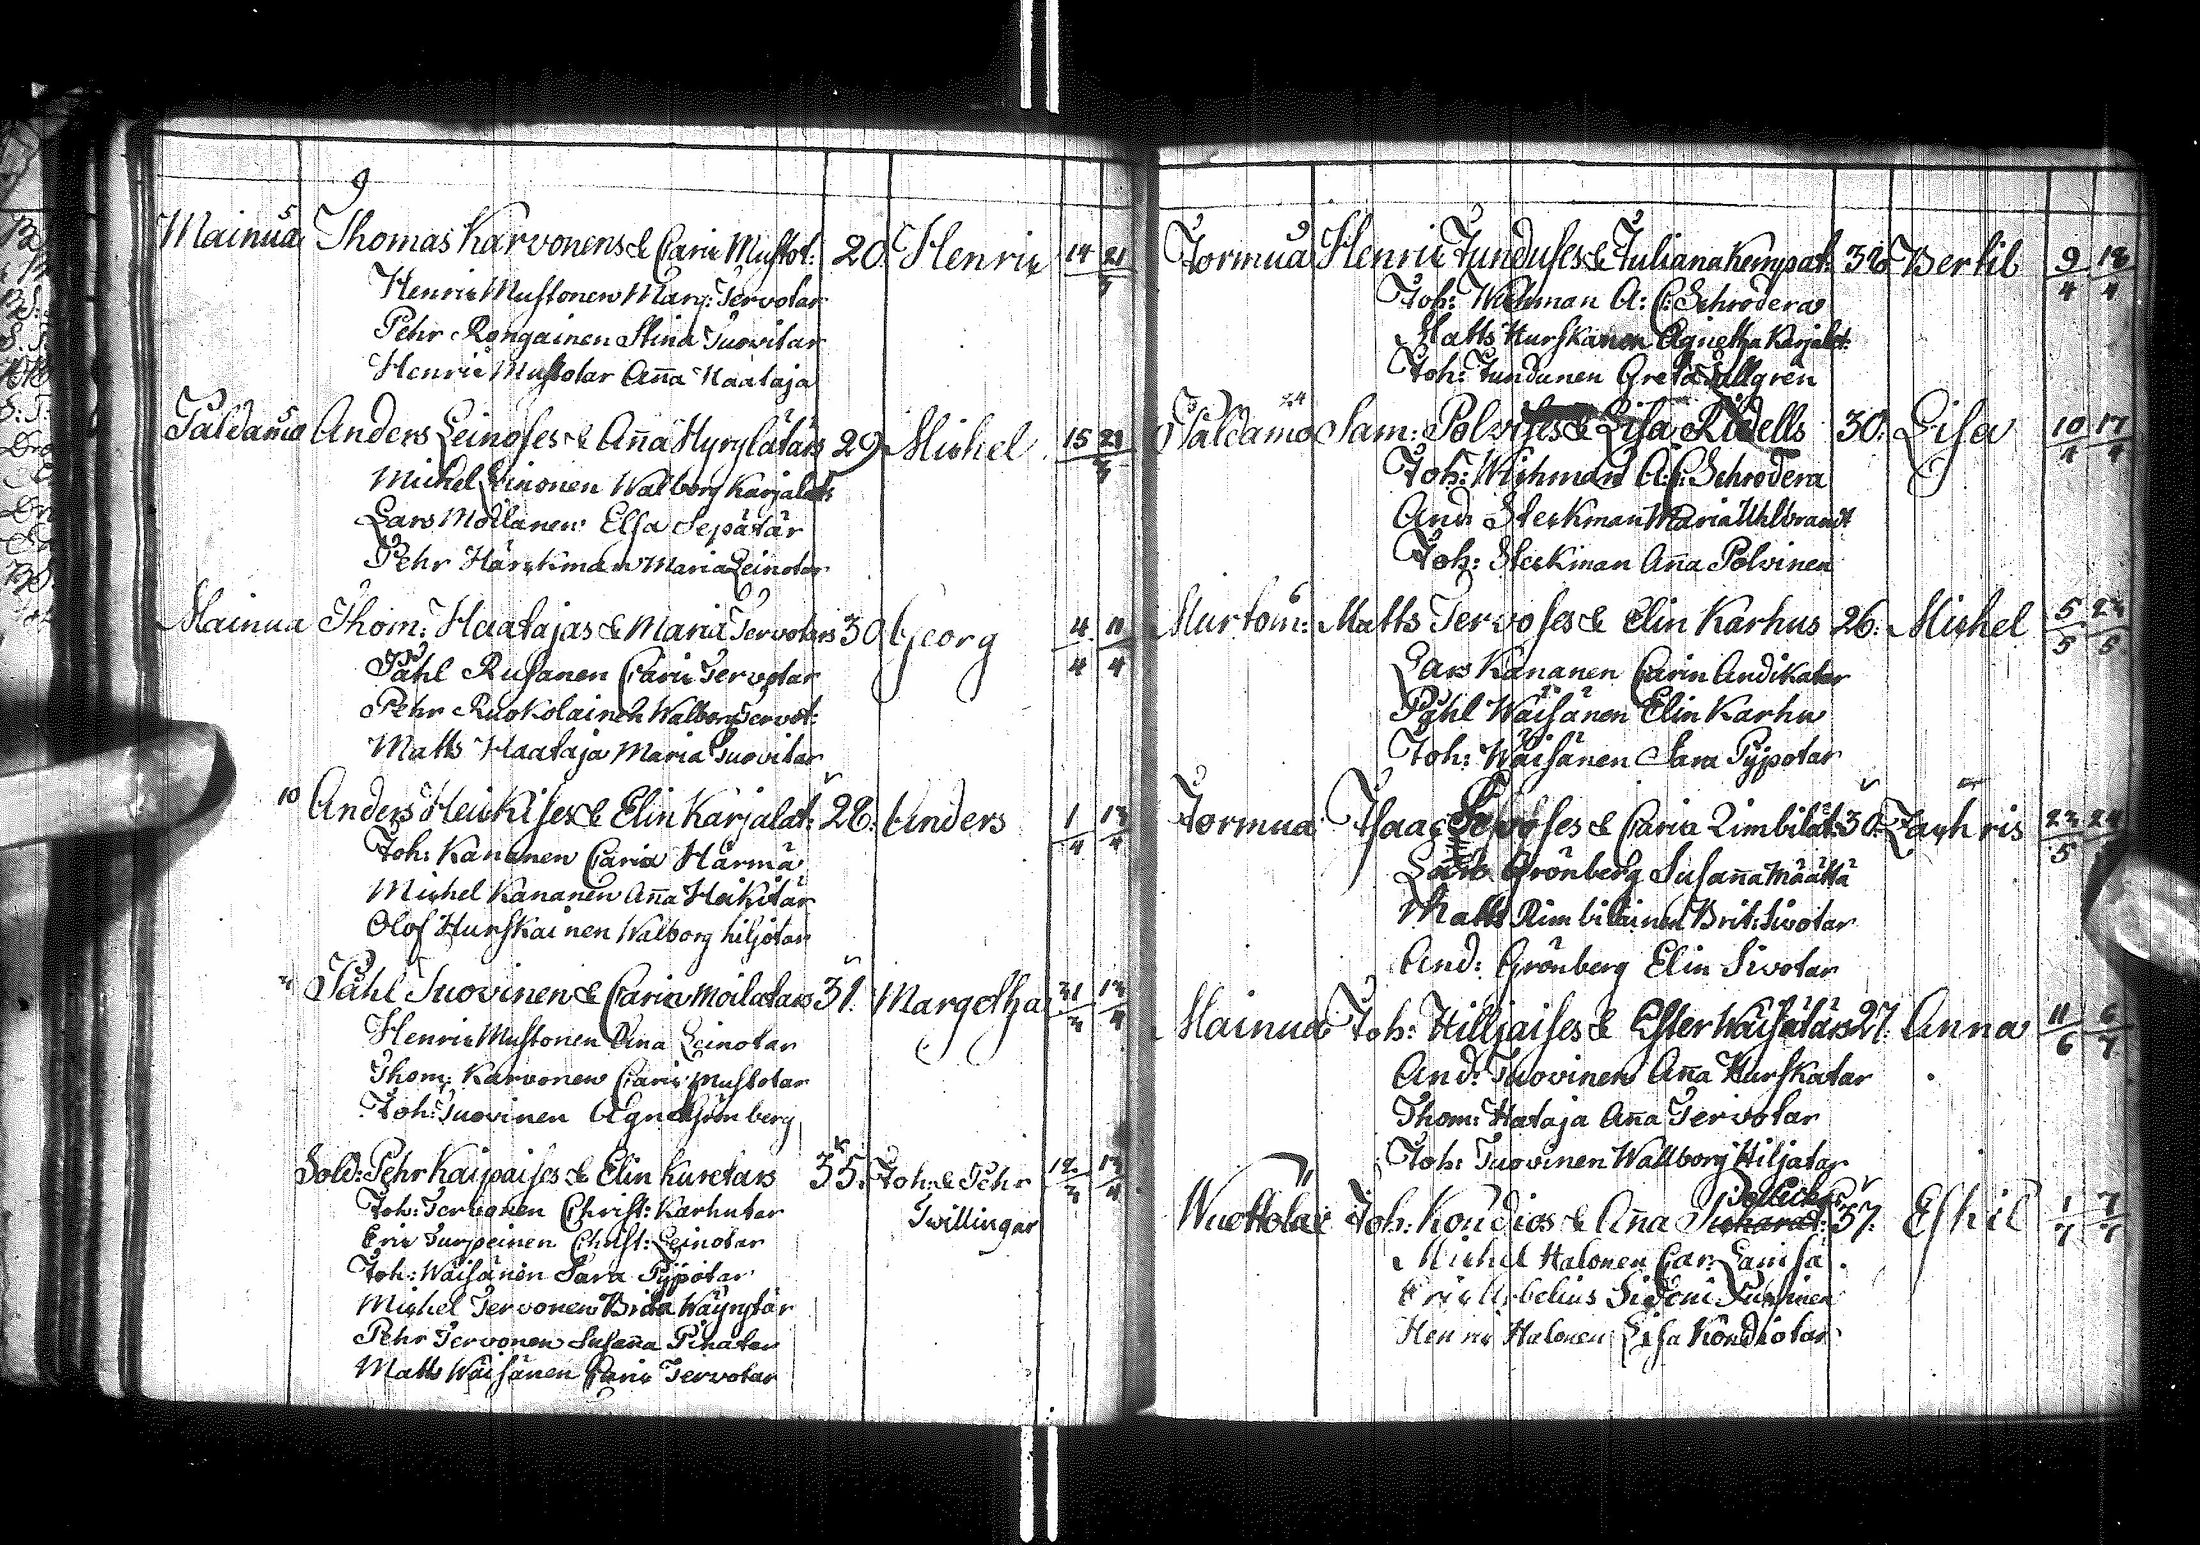 9
Mainua 5 Thomas Karvonens & Carin Mustot: 20. Henric 14 21/3
Henric Mustonen Marg: Tervotar
Pehr Rongainen Stina Tuovitar
Henric Mustotar Anna Haataja
Paldamo 5 Anders Leinoses & Anna Hyrylätärs 29 Michel 15 21
Michel Leinonen Walborg Karjalat:
Lars Moilanen Elsa Sepätär
Pehr Härkman Maria Leinotar
Mainua Thom: Haatajas & Maria Tervotars 30 Georg 4/4 11/4
Påhl Rusanen Carin Tervotar
Pehr Ruokolainen Walborg Tervot:
Matts Haataja Maria Tuovitar
10 Anders Heickises & Elin Karjalat: 28. Anders 1/4 13/4
Joh: Kananen Carin Härmä
Michel Kananen Anna Heikitär
Olof Hurskainen Walborg hiljotar
Påhl Tuovinens & Carin Moilatars 31. Margetha 31/3 13/4
Henric Mustonen Anna Leinotar
Thom: Karvonen Carin Mustotar
Joh: Tuovinen Agneta Grönberg
Sold: Pehr Kaipaises & Elin Kuretars 35. Joh: & Pehr 12 13/4
Twillingar
Joh: Tervonen Christ: Karhutar
Eric Turpeinen Christ: Leinotar
Joh: Wäisänen Sara Pypotar
Michel Tervonen Brita Wäyrytär
Pehr Tervonen Susanna Pikatar
Matts Wäisänen Carin Tervotar
Jormua 9 Henric Junduses & Juliana Kempat: 32 Bertil 9/4 18/4
Joh: Wichman A: C: Schrodera
Matts Hurskanen Agnetha Karjalat:
Joh: Jundunen Greta Sallgren
Paldamo 24 Sam: Polvises & Lisa Ridells 30. Lisa 10/4 17/4
Joh: Wichman A: C: Schrodera
And: Steckman Maria Uhlbrandt
Joh: Steckman Anna Polvinen
Murtom: 6 Matts Tervoses & Elin Karhus 26. Michel 5/5 23/5
Lars Kananen Carin Andikatar
Påhl Wäisänen Elin Karhu
Joh: Wäisänen Sara Pypotar
Jormua Isaac & Carin Rimbilät: 30. Zachris 23/5 24
Grönberg Susanna Määttä
Matts Rimbiläinen Brit: Sivotar
And: Grönberg Elin Sivotar
Mainua Joh: Hilljaises & Ester Wäisätärs 27. Anna 11/6 6/7
And: Tuovinen Anna Hurskatar
Thom: Hataja Anna Tervotar
Joh: Tuovinen Wallborg Hiljatar
Wuottolax Joh: Kondios & Anna 37. Eskil 1/7 7/7
Michel Halonen Car: Lanisa
Eric Sidoni
Henric Halonen Lisa Kondiotar